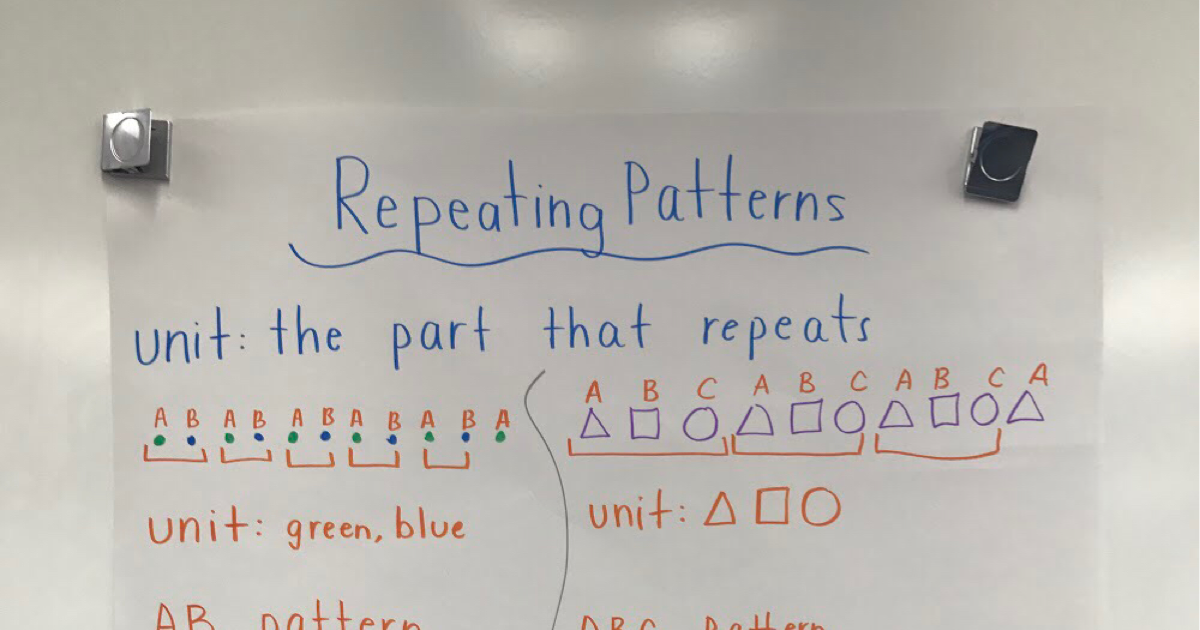 Repeating Patterns
unit: the part that repeats
A B A B A B A B A B A
unit: green, blue
AB pattern
A B C A B C A B C A
unit:
ABC pattern